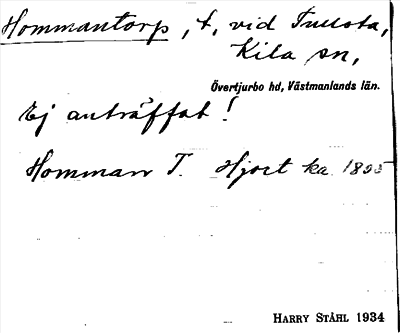 Hommantorp, t, vid Tullsta,
Kila sn,
Övertjurbo hd, Västmanlands län.
Ej anträffat!
Homman T. Hjort ka 1855
HARRY STÅHL 1934